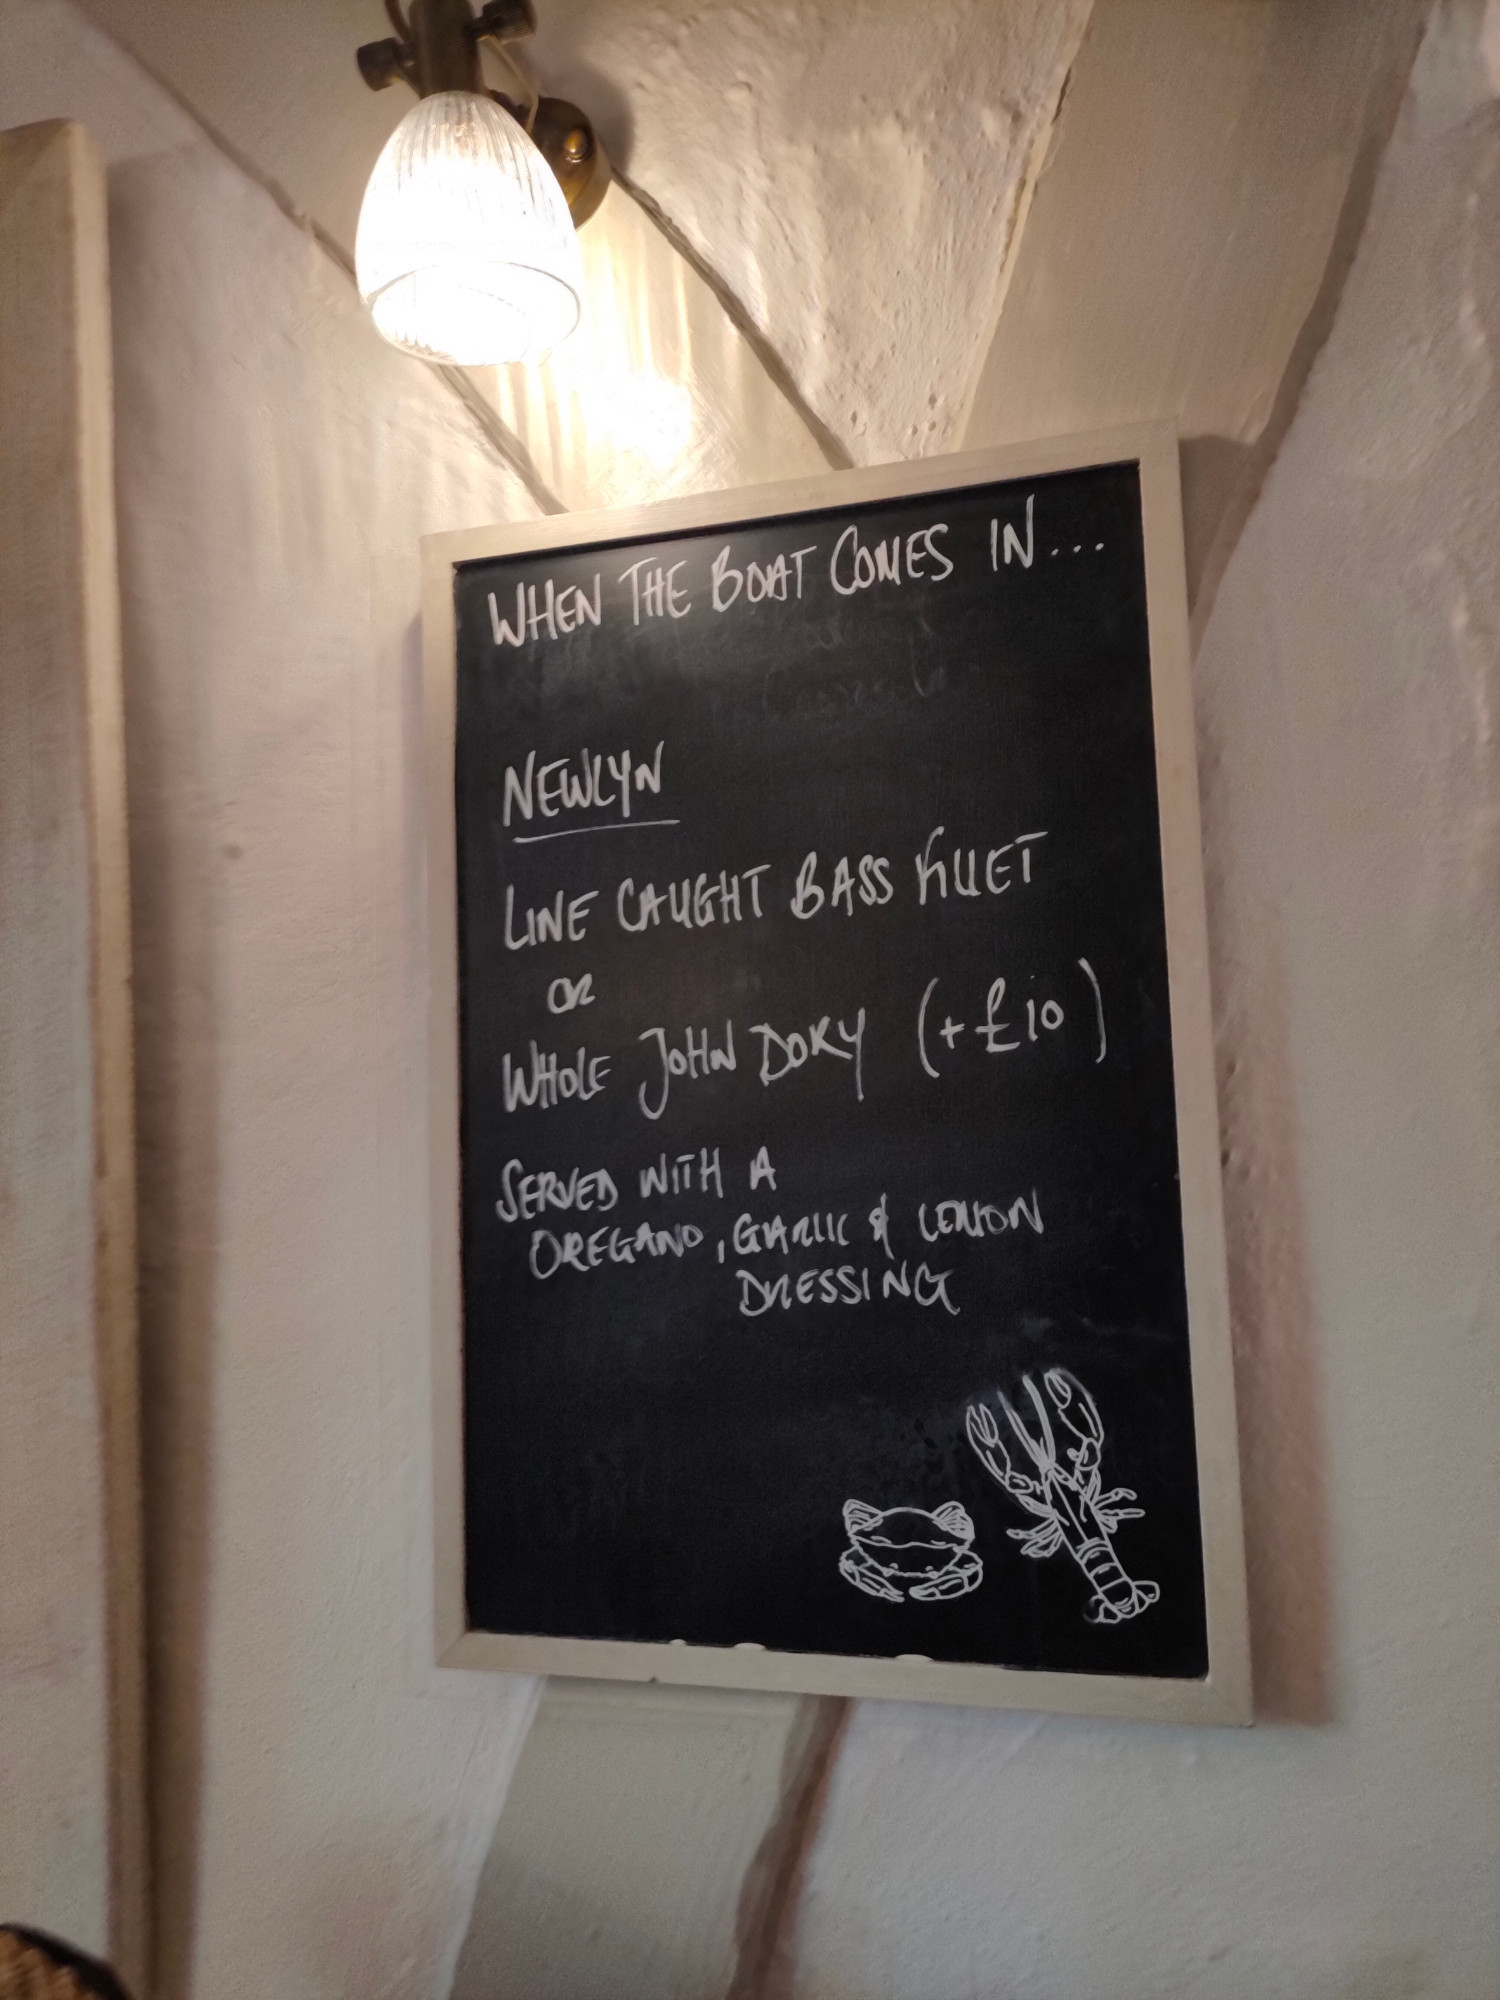 WHEN THE BOAT COMES IN...
NEWLYN
LINE CAUGHT BASS FILLET
OR
WHOLE JOHN DORY (+£10)
SERVED WITH A
OREGANO, GARLIC & LEMON
DRESSING